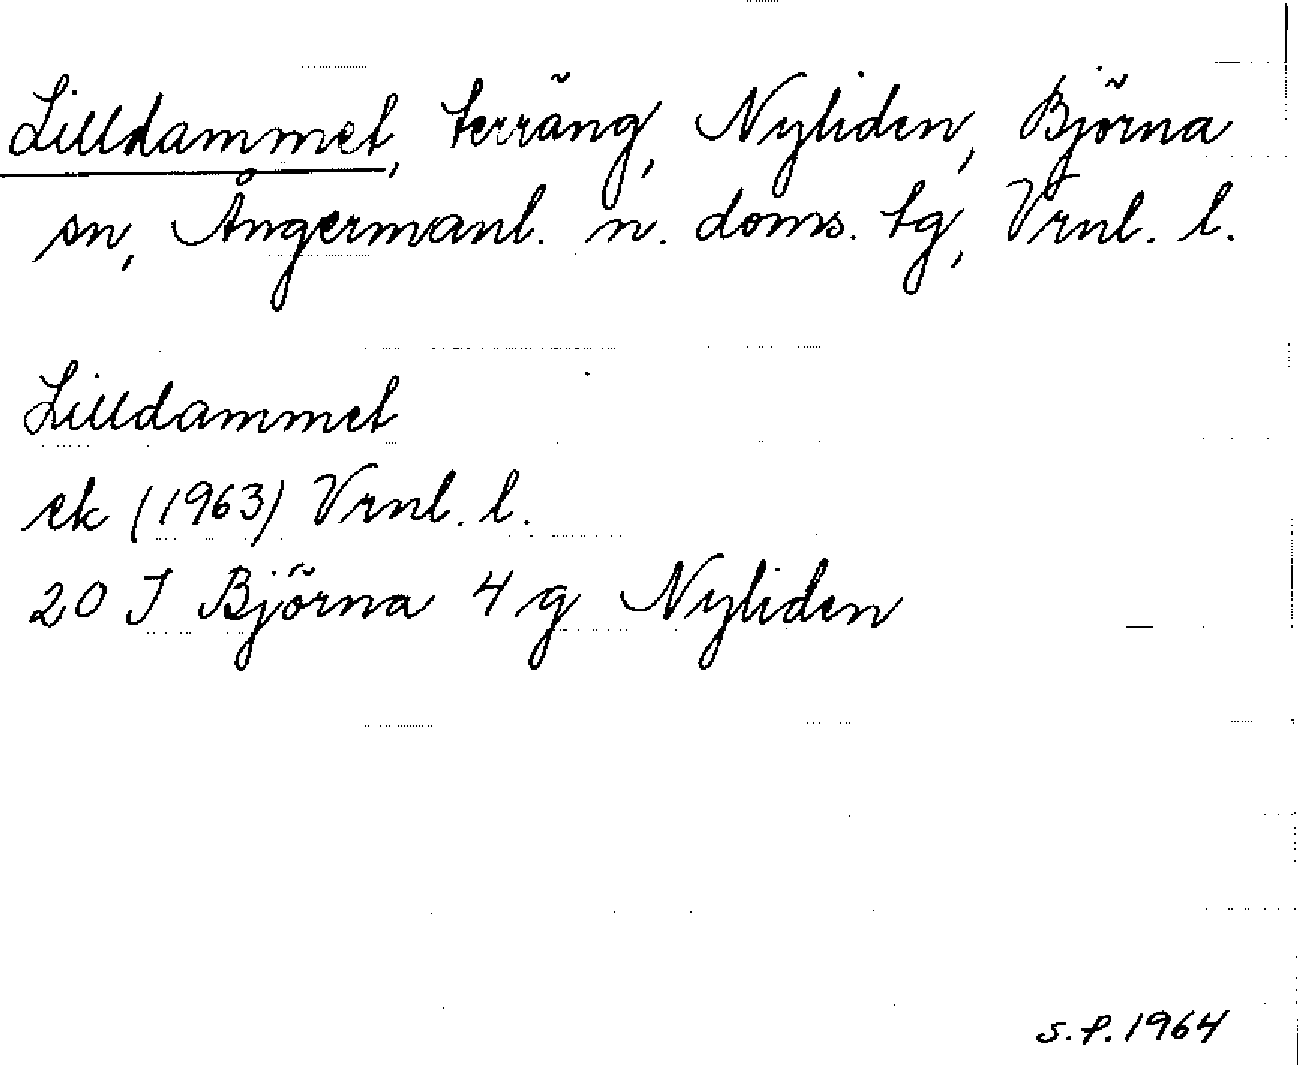 Lilldammet, terräng, Nyliden, Björna
sn, Ångermanl. n. doms. tg, Vrnl. l.
Lilldammet
ek (1963) Vrnl. l.
20 I Björna 4 g Nyliden
S.P. 1964